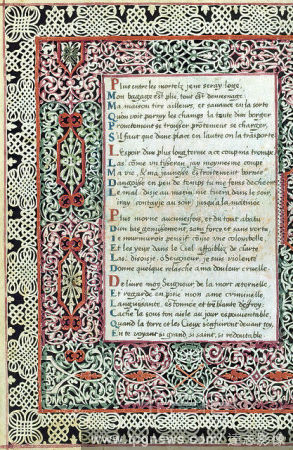 Plus entre les mortelz je ne seray logé,
Mon bagage est plié, tout est demenagé
Ma maison tire ailleurs, et s'avance en la sorte
Qu'on voit parmy les champs la loge d'un berger
Promptement se trousser prestement se charger,
S'il faut que d'une place en l'autre on la transporte.
L'espoir d'un plus long terme a ce coup m'a trompé
Las, côme un tisseran j'ay moymesme coupé
Ma vie, & ma journée estroitement bornée
D'angoisse en peu de temps tu me feras
Le mal dés au matin me tient, dans le soir
J'ay jusqu'à la matinée
Plus morne aucunesfois, et du tout abatu
D'un bas gemissement, sans force et sans vertu,
Je murmurois pensif côme une colombelle
Et les yeux dans le Ciel affoiblis de clarté
Las, disois-je, ô Seigneur, je suis violenté
Donne quelque relache a ma douleur cruelle.
Delivre moy Seigneur de la mort eternelle
Et regarde en pitié mon ame criminelle,
Languissante, estonnee, et tremblante d'effroy
Cache la sous ton aile au jour espouventable,
Quand la terre et les Cieux s'enfuiront devant toy,
En te voyant si grand, si saint, si redoutable.